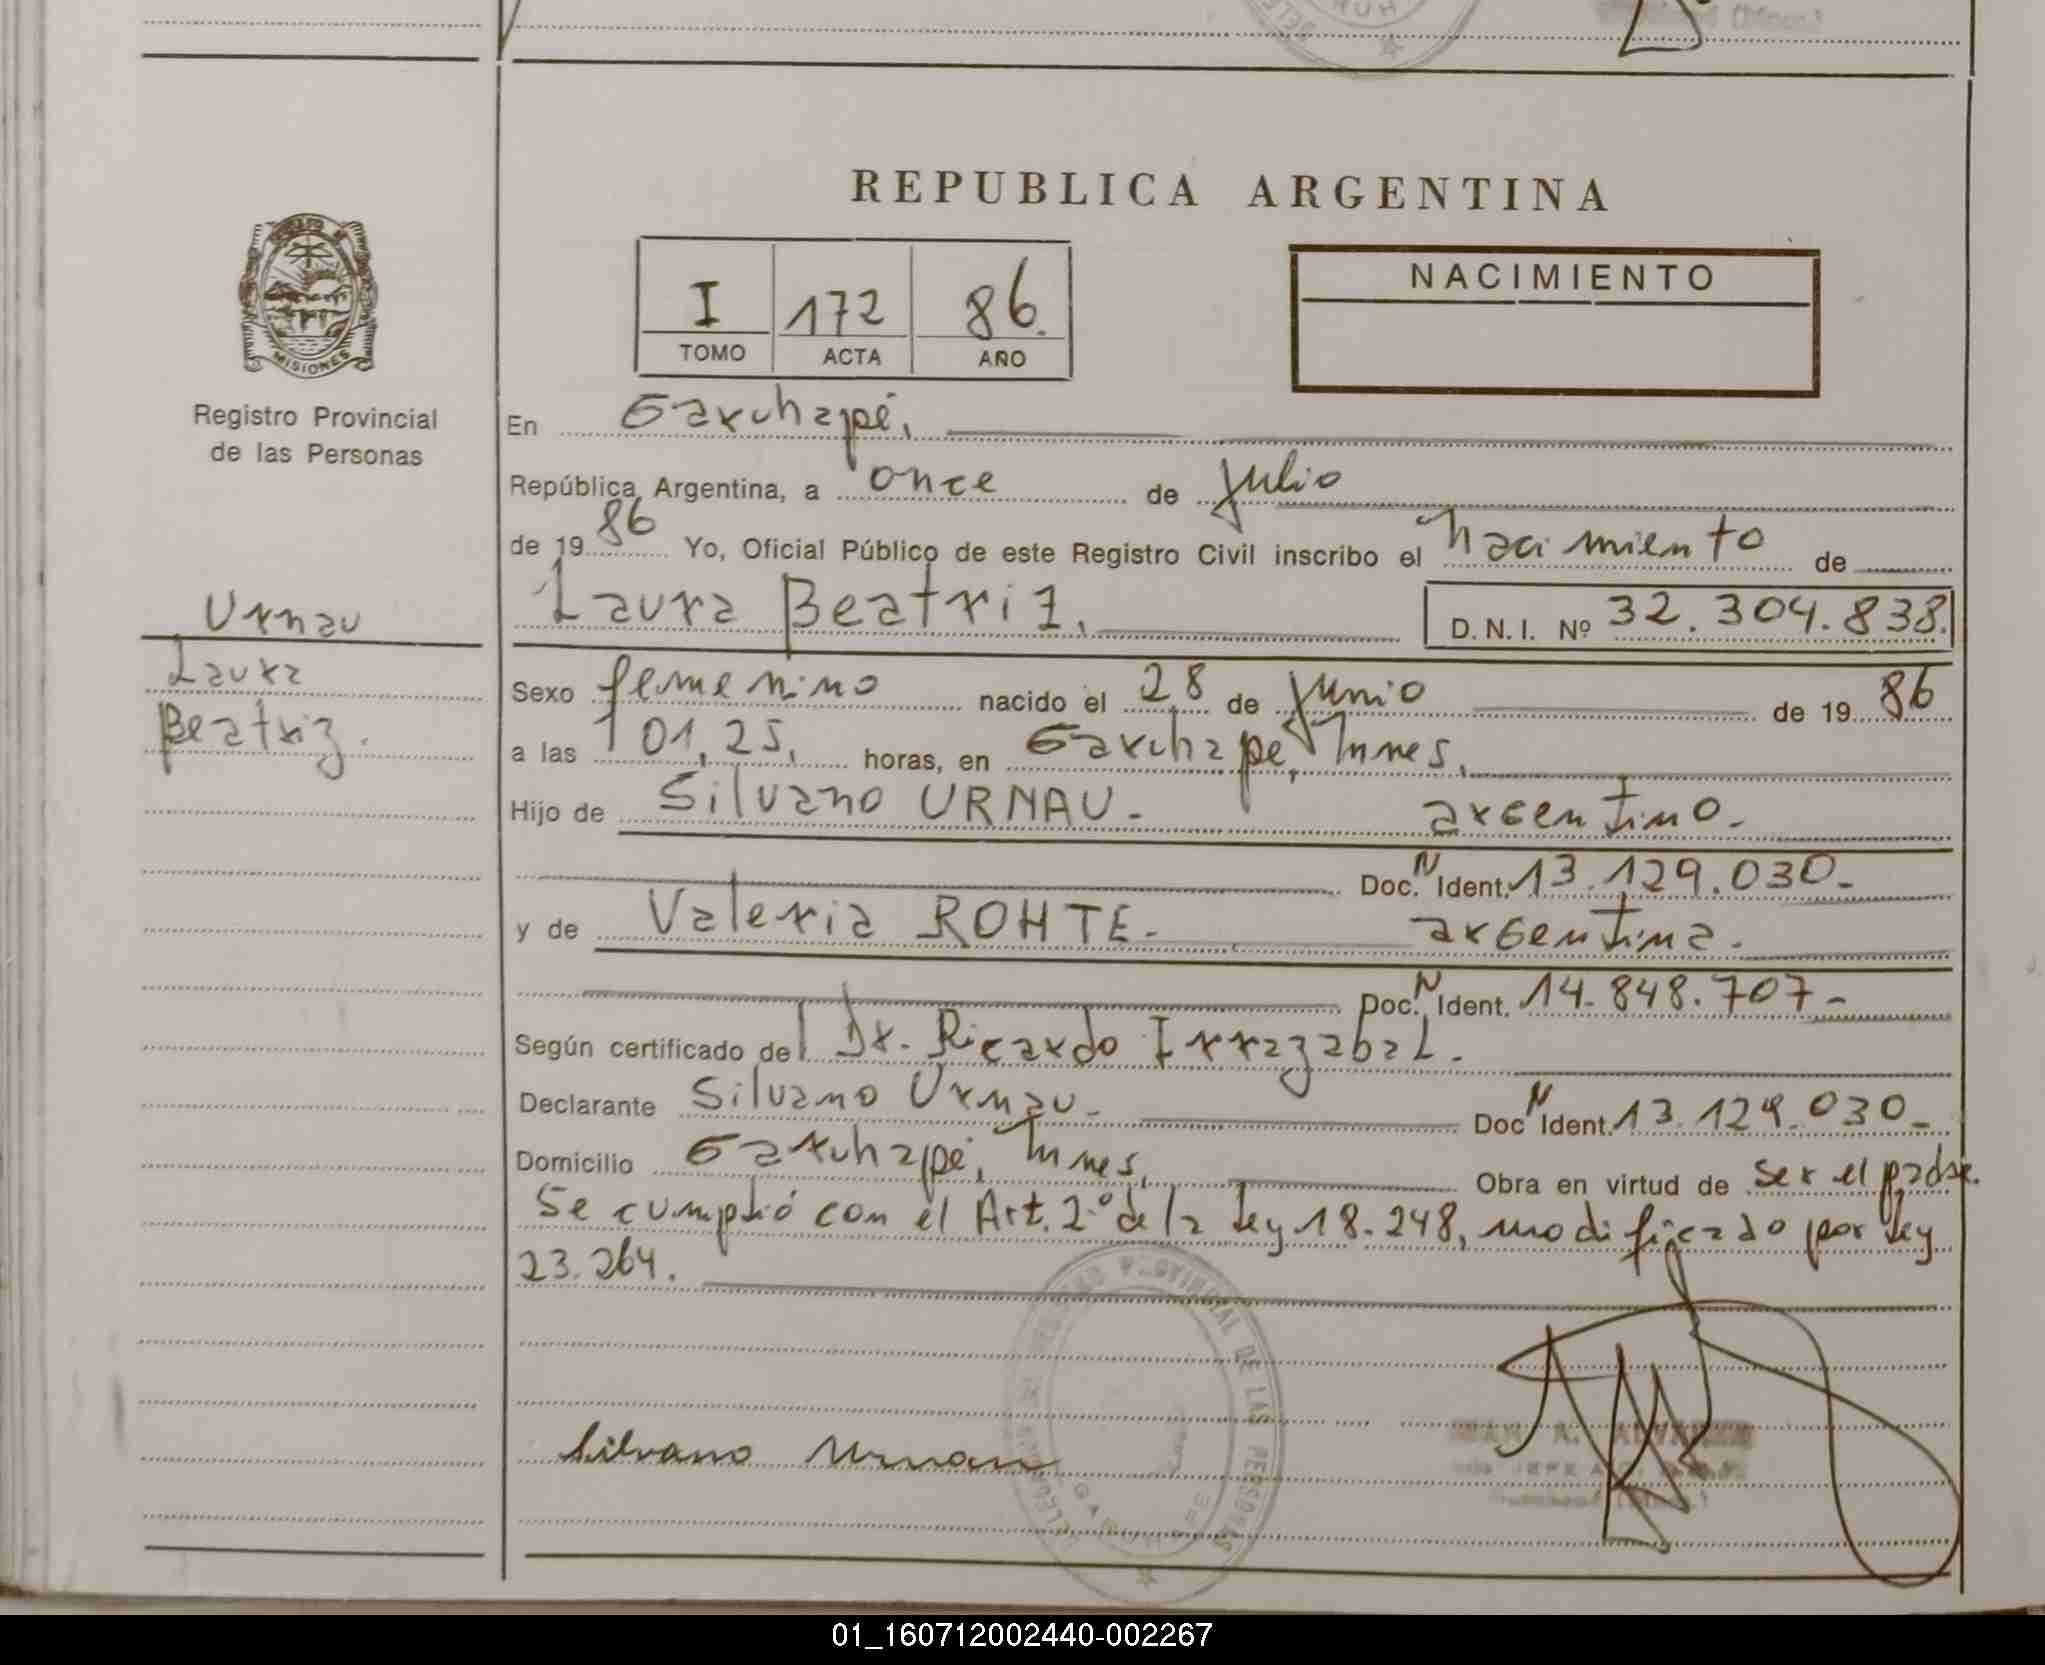 REPUBLICA ARGENTINA
MISIONES
Registro Provincial
de las Personas
I 172 86.
TOMO ACTA AÑO
NACIMIENTO
En Garuhapé,
República Argentina, a once de Julio
de 1986 Yo, Oficial Público de este Registro Civil inscribo el nacimiento de
Urnau
Laura
Beatriz.
Laura Beatriz, D.N.I. Nº 32.304.838.
Sexo femenino nacido el 28 de Junio de 1986
a las 01,25, horas, en Garuhape, Mnes,
Hijo de Silvano URNAU. argentino.
Doc. N Ident. 13.129.030-
y de Valeria ROHTE. argentina.
Doc. N Ident. 14.848.707-
Según certificado del Dr. Ricardo Irrazabal.
Declarante Silvano Urnau. Doc N Ident. 13.129.030-
Domicilio Garuhapé, Mnes, Obra en virtud de ser el padre.
Se cumplió con el Art. 2º de la Ley 18.248, modificado por Ley
23.264.
PROVINCIAL DE LAS PERSONAS
GARUHAPE
Silvano Urnau
01_160712002440-002267